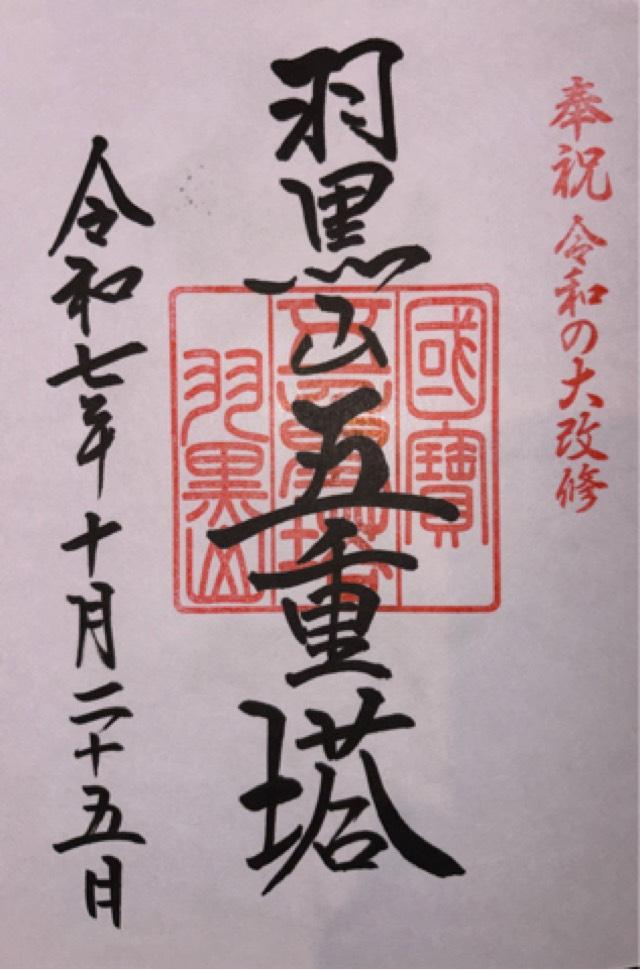 奉祝 令和の大改修
羽黒山五重塔
國寶
五重塔
羽黒山
令和七年十月二十五日